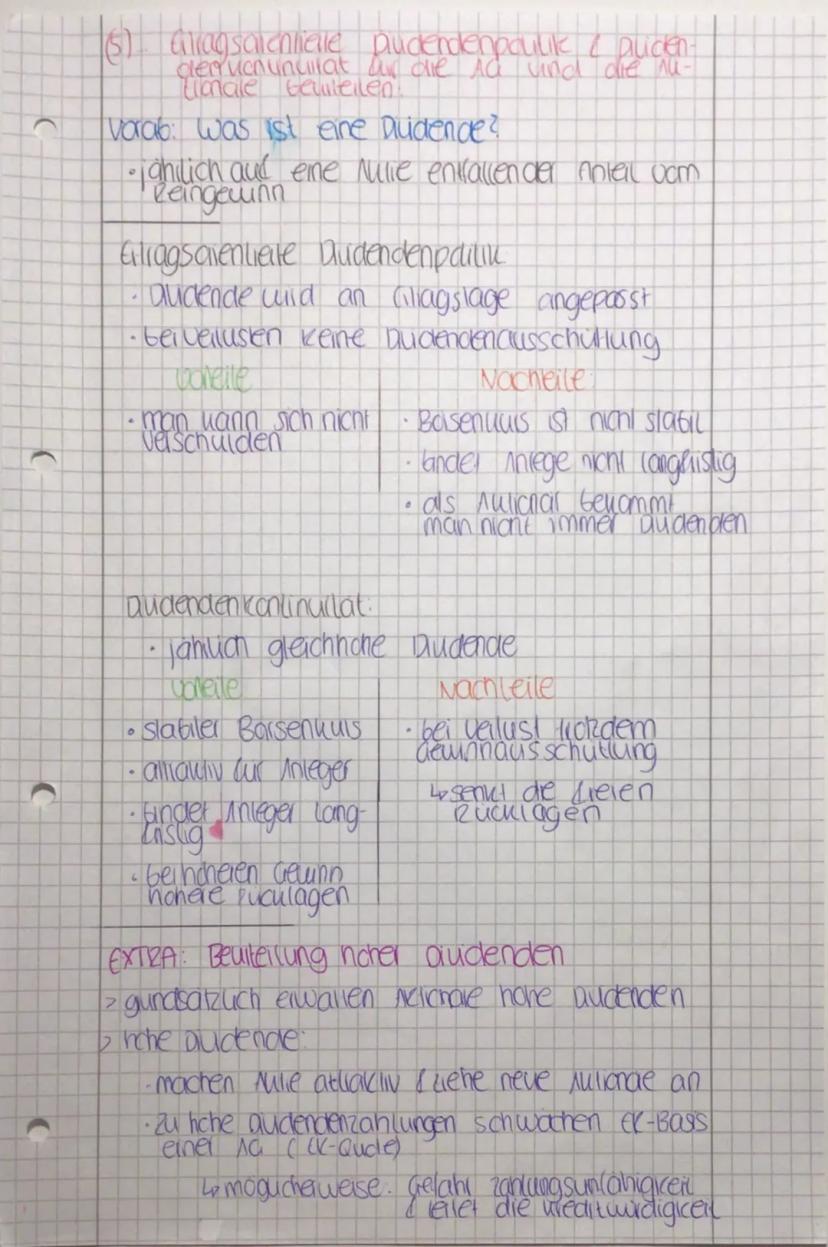 (5) Ertragsorientierte Dividendenpolitik & Dividen-
denkontinuität für die AG und die Ak-
tionäre beurteilen:
Vorab: Was ist eine Dividende?
· jährlich auf eine Aktie entfallender Anteil vom
Reingewinn
Ertragsorientierte Dividendenpolitik
· Dividende wird an Ertragslage angepasst
· bei Verlusten keine Dividendenausschüttung
Vorteile
Nachteile:
· man kann sich nicht
verschulden
· Börsenkurs ist nicht stabil
· bindet Anleger nicht langfristig
· als Aktionär bekommt
man nicht immer Dividenden
Dividendenkontinuität:
· jährlich gleichhohe Dividende
Vorteile
Nachteile
· stabiler Börsenkurs
· attraktiv für Anleger
· bindet Anleger lang-
fristig
· bei höheren Gewinn
höhere Rücklagen
· bei Verlust trotzdem
Gewinnausschüttung
↳ senkt die freien
Rücklagen
EXTRA: Beurteilung hoher Dividenden
> grundsätzlich erwarten Aktionäre hohe Dividenden
> hohe Dividende:
· machen Aktie attraktiv & ziehe neue Aktionäre an
· zu hohe Dividendenzahlungen schwächen EK-Basis
einer AG (EK-Quote)
↳ möglicherweise: Gefahr Zahlungsunfähigkeit
& leidet die Kreditwürdigkeit